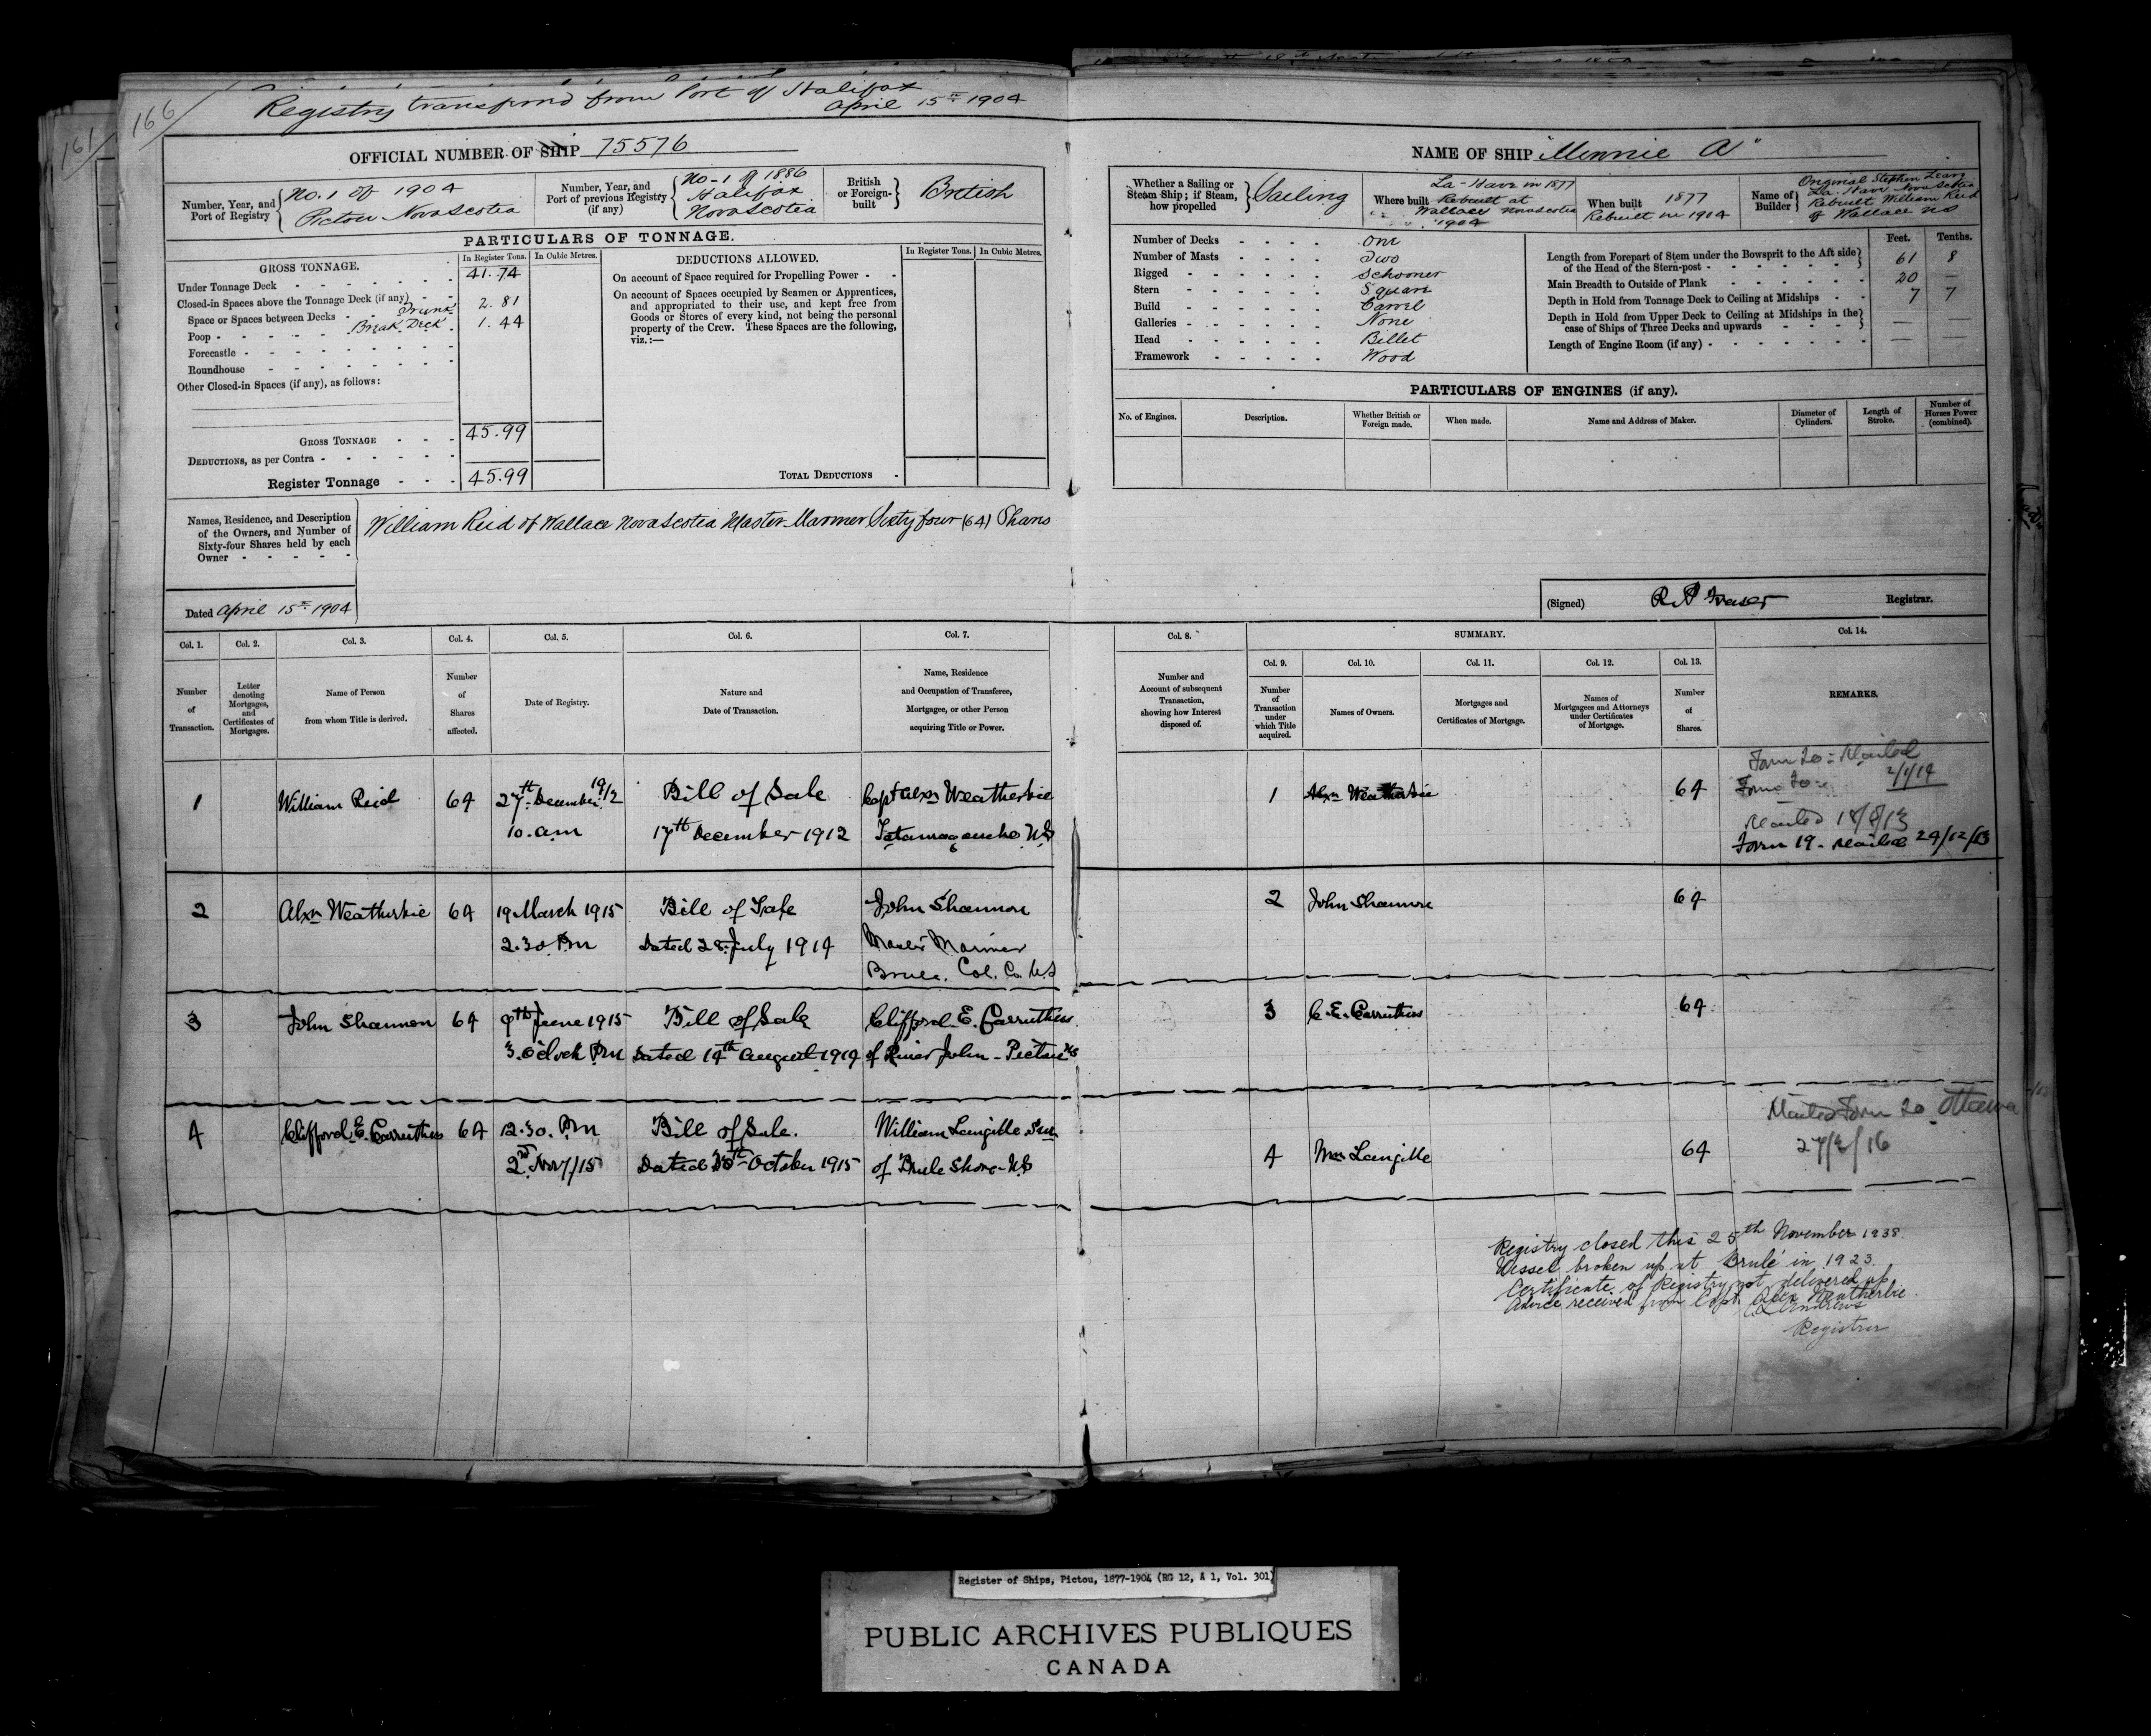 166
161
Registry transferred from Port of Halifax
April 15th 1904
OFFICIAL NUMBER OF SHIP 75576
Number, Year, and Port of Registry
No. 1 of 1904
Pictou Nova Scotia
Number, Year, and Port of previous Registry (if any)
No-1 of 1886
Halifax
Nova Scotia
British or Foreign-built
British
PARTICULARS OF TONNAGE.
GROSS TONNAGE.
In Register Tons.
In Cubic Metres.
Under Tonnage Deck 41.74
Closed-in Spaces above the Tonnage Deck (if any)
Space or Spaces between Decks Trunk 2.81
Poop Break Deck 1.44
Forecastle
Roundhouse
Other Closed-in Spaces (if any), as follows:
GROSS TONNAGE 45.99
DEDUCTIONS, as per Contra
Register Tonnage 45.99
DEDUCTIONS ALLOWED.
In Register Tons.
In Cubic Metres.
On account of Space required for Propelling Power
On account of Spaces occupied by Seamen or Apprentices,
and appropriated to their use, and kept free from
Goods or Stores of every kind, not being the personal
property of the Crew. These Spaces are the following,
viz.:—
TOTAL DEDUCTIONS
NAME OF SHIP "Minnie A"
Whether a Sailing or Steam Ship; if Steam, how propelled
Sailing
Where built
La-Have in 1877
Rebuilt at
Wallace Nova Scotia
1904
When built
1877
Rebuilt in 1904
Name of Builder
Original Stephen
La-Have Nova Scotia
Rebuilt William Reid
of Wallace NS
Number of Decks One
Number of Masts Two
Rigged Schooner
Stern Square
Build Carvel
Galleries None
Head Billet
Framework Wood
Feet. Tenths.
Length from Forepart of Stem under the Bowsprit to the Aft side
of the Head of the Stern-post 61 8
Main Breadth to Outside of Plank 20 —
Depth in Hold from Tonnage Deck to Ceiling at Midships 7 7
Depth in Hold from Upper Deck to Ceiling at Midships in the
case of Ships of Three Decks and upwards — —
Length of Engine Room (if any) — —
PARTICULARS OF ENGINES (if any).
No. of Engines.
Description.
Whether British or Foreign made.
When made.
Name and Address of Maker.
Diameter of Cylinders.
Length of Stroke.
Number of Horses Power (combined).
Names, Residence, and Description
of the Owners, and Number of
Sixty-four Shares held by each
Owner
William Reid of Wallace Nova Scotia Master Mariner Sixty four (64) Shares
Dated April 15th 1904
(Signed) Registrar.
Col. 1.
Number of Transaction.
Col. 2.
Letter denoting Mortgages, and Certificates of Mortgages.
Col. 3.
Name of Person from whom Title is derived.
Col. 4.
Number of Shares affected.
Col. 5.
Date of Registry.
Col. 6.
Nature and Date of Transaction.
Col. 7.
Name, Residence and Occupation of Transferee, Mortgagee, or other Person acquiring Title or Power.
Col. 8.
Number and Account of subsequent Transaction, showing how Interest disposed of.
SUMMARY.
Col. 9.
Number of Transaction under which Title acquired.
Col. 10.
Names of Owners.
Col. 11.
Mortgages and Certificates of Mortgage.
Col. 12.
Names of Mortgagees and Attorneys under Certificates of Mortgage.
Col. 13.
Number of Shares.
Col. 14.
REMARKS.
1 William Reid 64 27th December 1912 Bill of Sale Capt Alexr Weatherbie
10. am 17th December 1912 Tatamagouche N.S
1 Alexr Weatherbie 64
Form 20 - Mailed
2/1/14
Mailed 18/8/13
Form 19 - Mailed 24/12/13
2 Alexr Weatherbie 64 19 March 1915 Bill of Sale John Shannon
2.30 Pm Dated 28 July 1914 Master Mariner
Brule. Col. Co. N.S
2 John Shannon 64
3 John Shannon 64 9th June 1915 Bill of Sale Clifford E. Carruthers
3. o'clock Pm Dated 14th August 1914 of River John - Pictou NS
3 C. E. Carruthers 64
4 Clifford E. Carruthers 64 12.30. Pm Bill of Sale. William Langille Snr
2nd Nov/15 Dated October 1915 of Brule Shore - N.S
4 Wm Langille 64
Mailed Form 20 Ottawa
Registry closed this 25th November 1938.
Vessel broken up at Brulé in 1923.
Certificate of Registry not delivered up
Advice received from Capt. Alex Weatherbie.
Andrews
Registrar
Register of Ships, Pictou, 1877-1904 (RG 12, A 1, Vol. 301)
PUBLIC ARCHIVES PUBLIQUES
CANADA